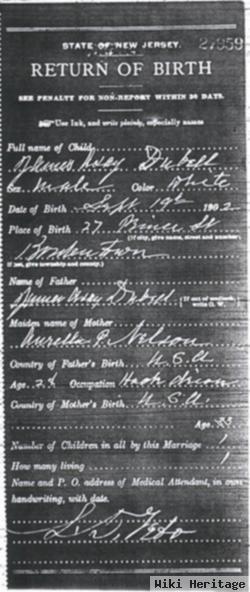 STATE OF NEW JERSEY. 27959
RETURN OF BIRTH
SEE PENALTY FOR NON-REPORT WITHIN 30 DAYS.
Use Ink, and write plainly, especially names
Full name of Child
James Asay Dubell
Sex Male Color White
Date of Birth Sept 19th 1902
Place of Birth 27 St
(If city, give name, street and number;
Bordentown
if not, give township and county.)
Name of Father
James Asay Dubell {If out of wedlock, write O. W.}
Maiden name of Mother
Nelson
Country of Father's Birth U.S.A
Age Occupation
Country of Mother's Birth U.S.A.
Age 23
Number of Children in all by this Marriage 1
How many living 1
Name and P. O. address of Medical Attendant, in own
handwriting, with date.
Wiki Heritage